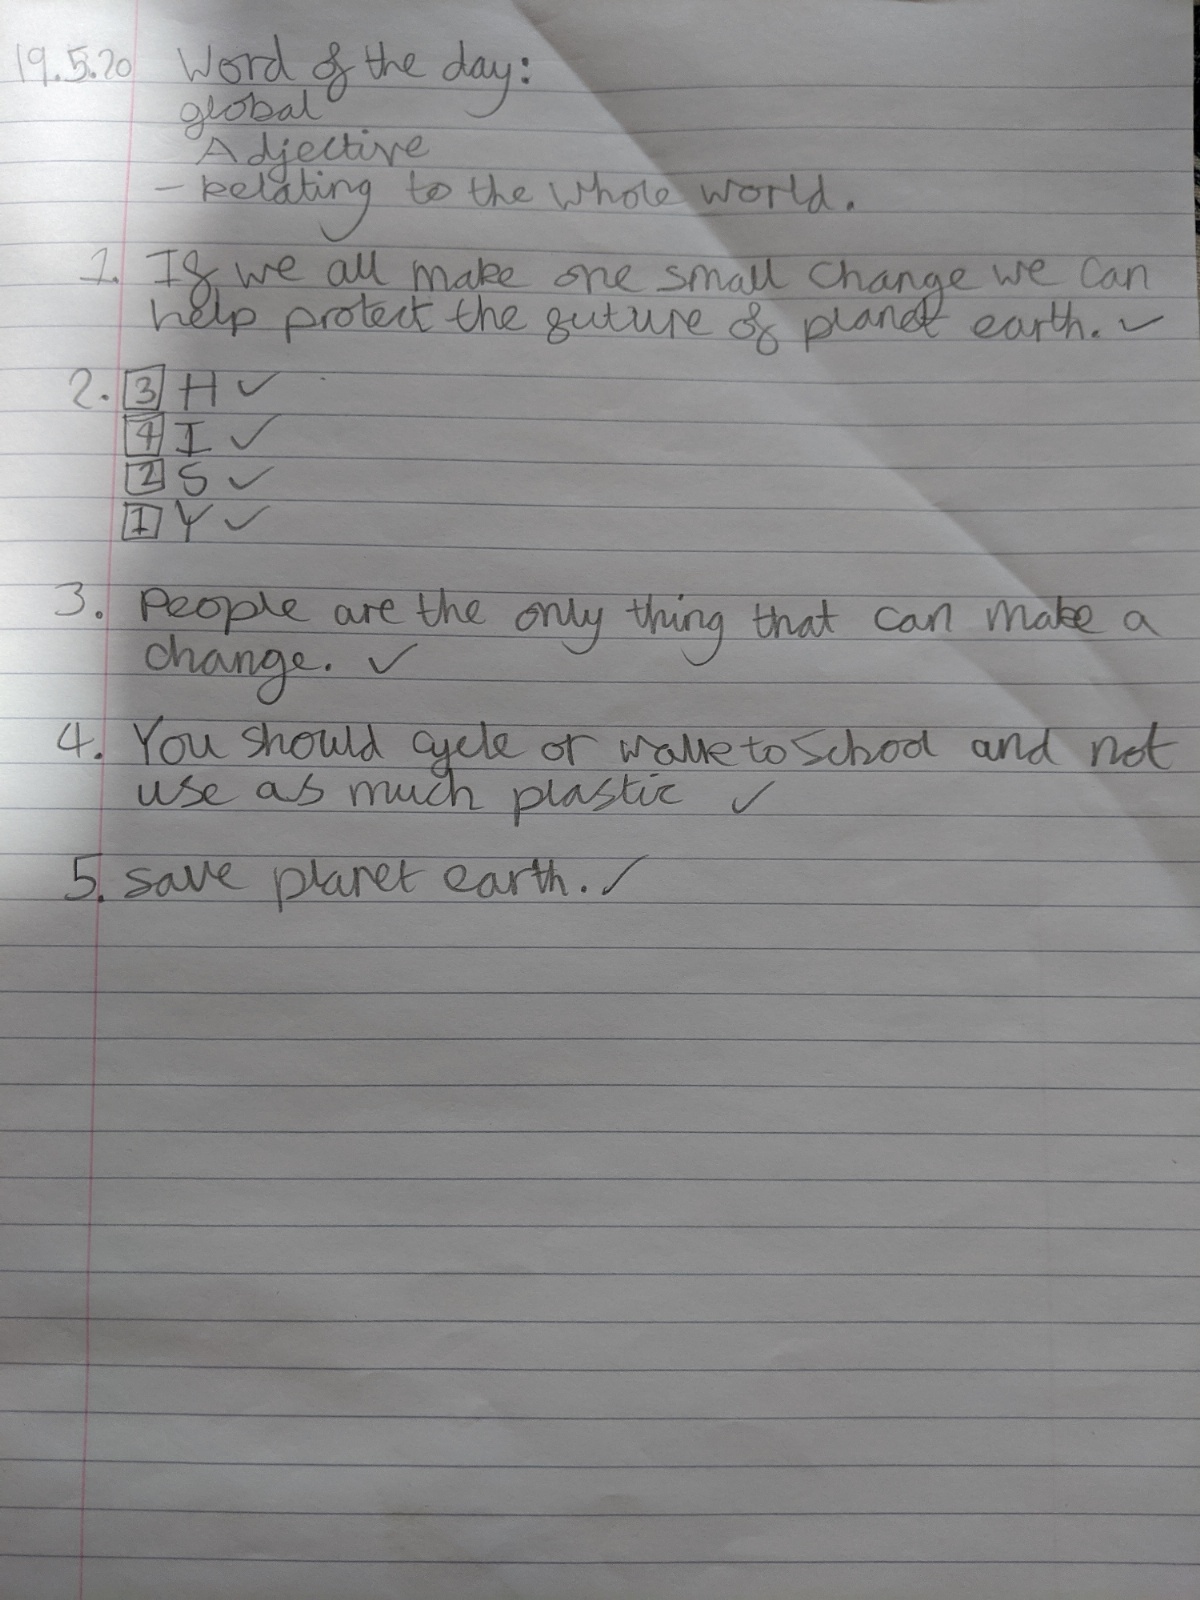 19.5.20 Word of the day:
global
Adjective
- Relating to the whole world.
1. If we all make one small change we can
help protect the future of planet earth. ✓
2. 3 H ✓
4 I ✓
2 S ✓
1 Y ✓
3. People are the only thing that can make a
change. ✓
4. You should cycle or walk to school and not
use as much plastic ✓
5. save planet earth. ✓